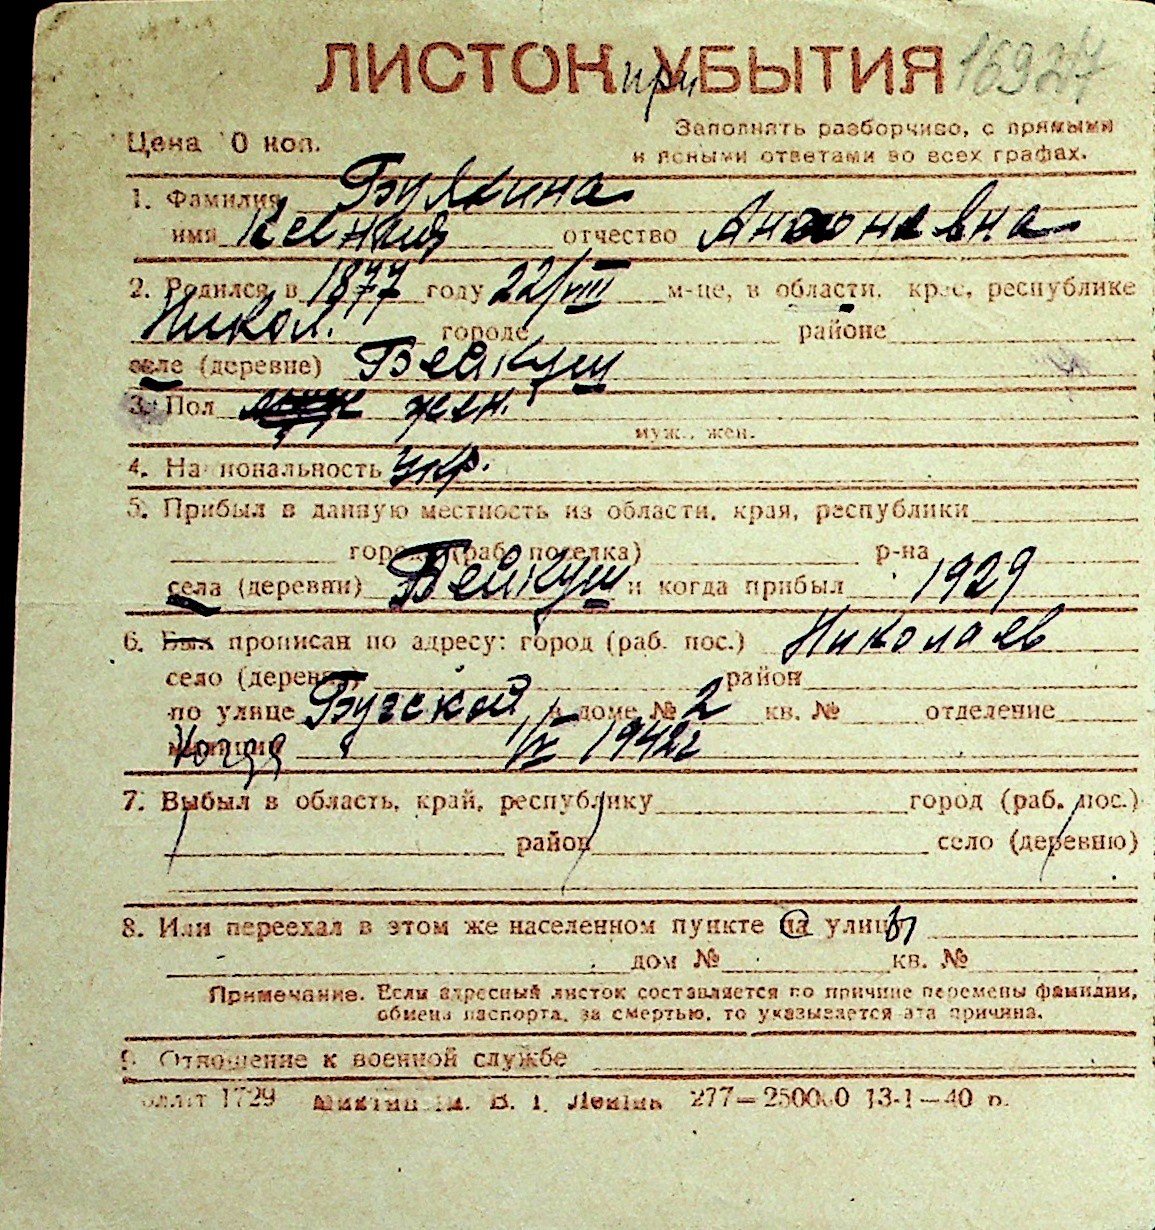 ЛИСТОК при УБЫТИЯ 16927
Цена 10 коп.
Заполнять разборчиво, с прямыми
и ясными ответами во всех графах.
1. Фамилия Булкина
имя Ксения отчество Антонавна
2. Родился в 1877 году 22/VIII м-це, в области, крае, республике
Никол. городе районе
селе (деревне) Бейкуш
3. Пол муж жен.
муж., жен.
4. Национальность укр.
5. Прибыл в данную местность из области, края, республики
города (раб. поселка) р-на
села (деревни) Бейкуш и когда прибыл 1929
6. Был прописан по адресу: город (раб. пос.) Николаев
село (деревня) район
по улице Бугской в доме № 2 кв. № отделение
милиции Когда 1/IV 1942г
7. Выбыл в область, край, республику город (раб. пос.)
район село (деревню)
8. Или переехал в этом же населенном пункте на улицы
дом № кв. №
Примечание. Если адресный листок составляется по причине перемены фамилии,
обмена паспорта, за смертью, то указывается эта причина.
9. Отношение к военной службе
1729 им. В. І. Леніна 277—250000 13-1—40 р.